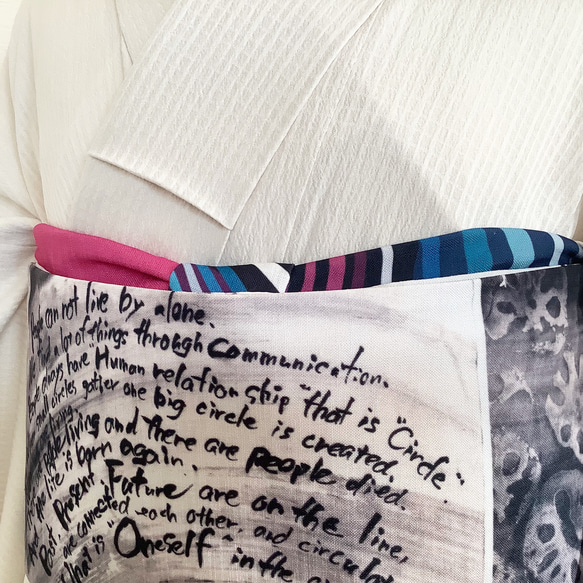 can not live by alone.
a lot of things through Communication.
always have Human relationship "that is "Circle".
small circles gather one big circle is created.
living and there are people died.
life is born again.
Past, Present, Future are on the line,
are connected each other, and circulat
What is "Oneself" in the